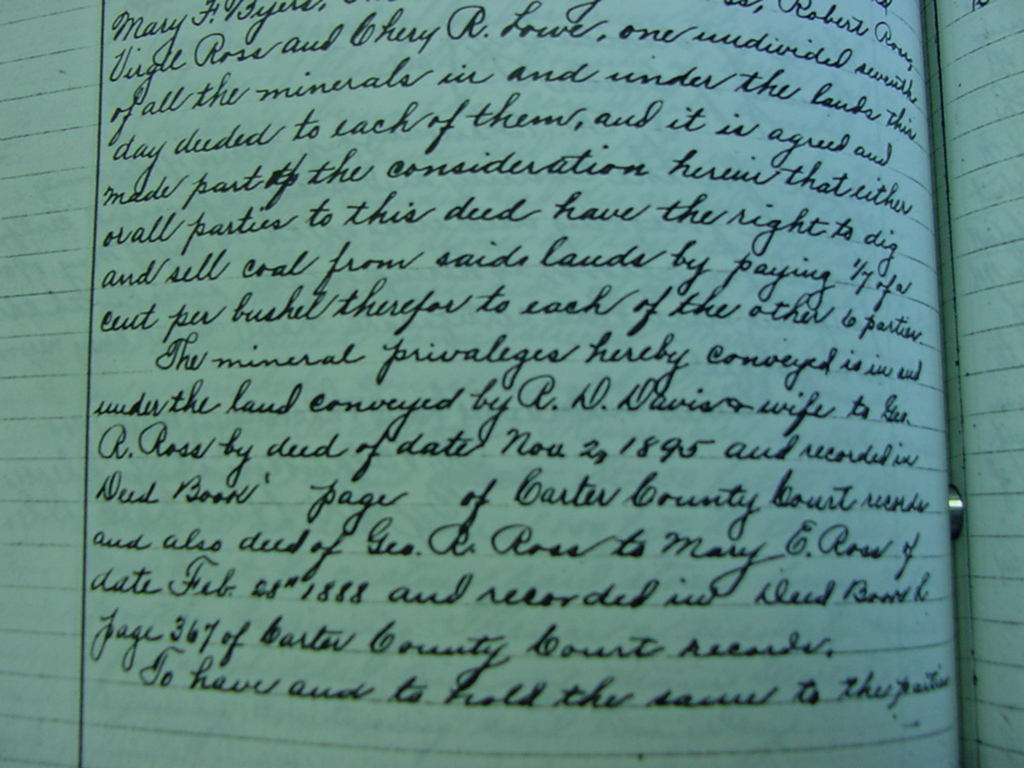 Mary F. Byers, Robert Ross,
Virgil Ross and Chery R. Lowe, one undivided seventh
of all the minerals in and under the lands this
day deeded to each of them, and it is agreed and
made part of the consideration herein that either
or all parties to this deed have the right to dig
and sell coal from saids lands by paying 1/7 of a
cent per bushel therefor to each of the other 6 parties.
The mineral privaleges hereby conveyed is in and
under the land conveyed by R. D. Davis & wife to Geo.
R. Ross by deed of date Nov. 2, 1895 and recorded in
Deed Book page of Carter County Court records
and also deed of Geo. R. Ross to Mary E. Ross of
date Feb. 28" 1888 and recorded in Deed Book
page 367 of Carter County Court records.
To have and to hold the same to the parties